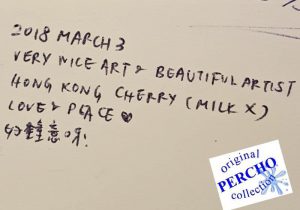 2018 MARCH 3
VERY NICE ART & BEAUTIFUL ARTIST
HONG KONG CHERRY (MILK X)
LOVE & PEACE ♥
鍾意呀!
original
PERCHO
collection